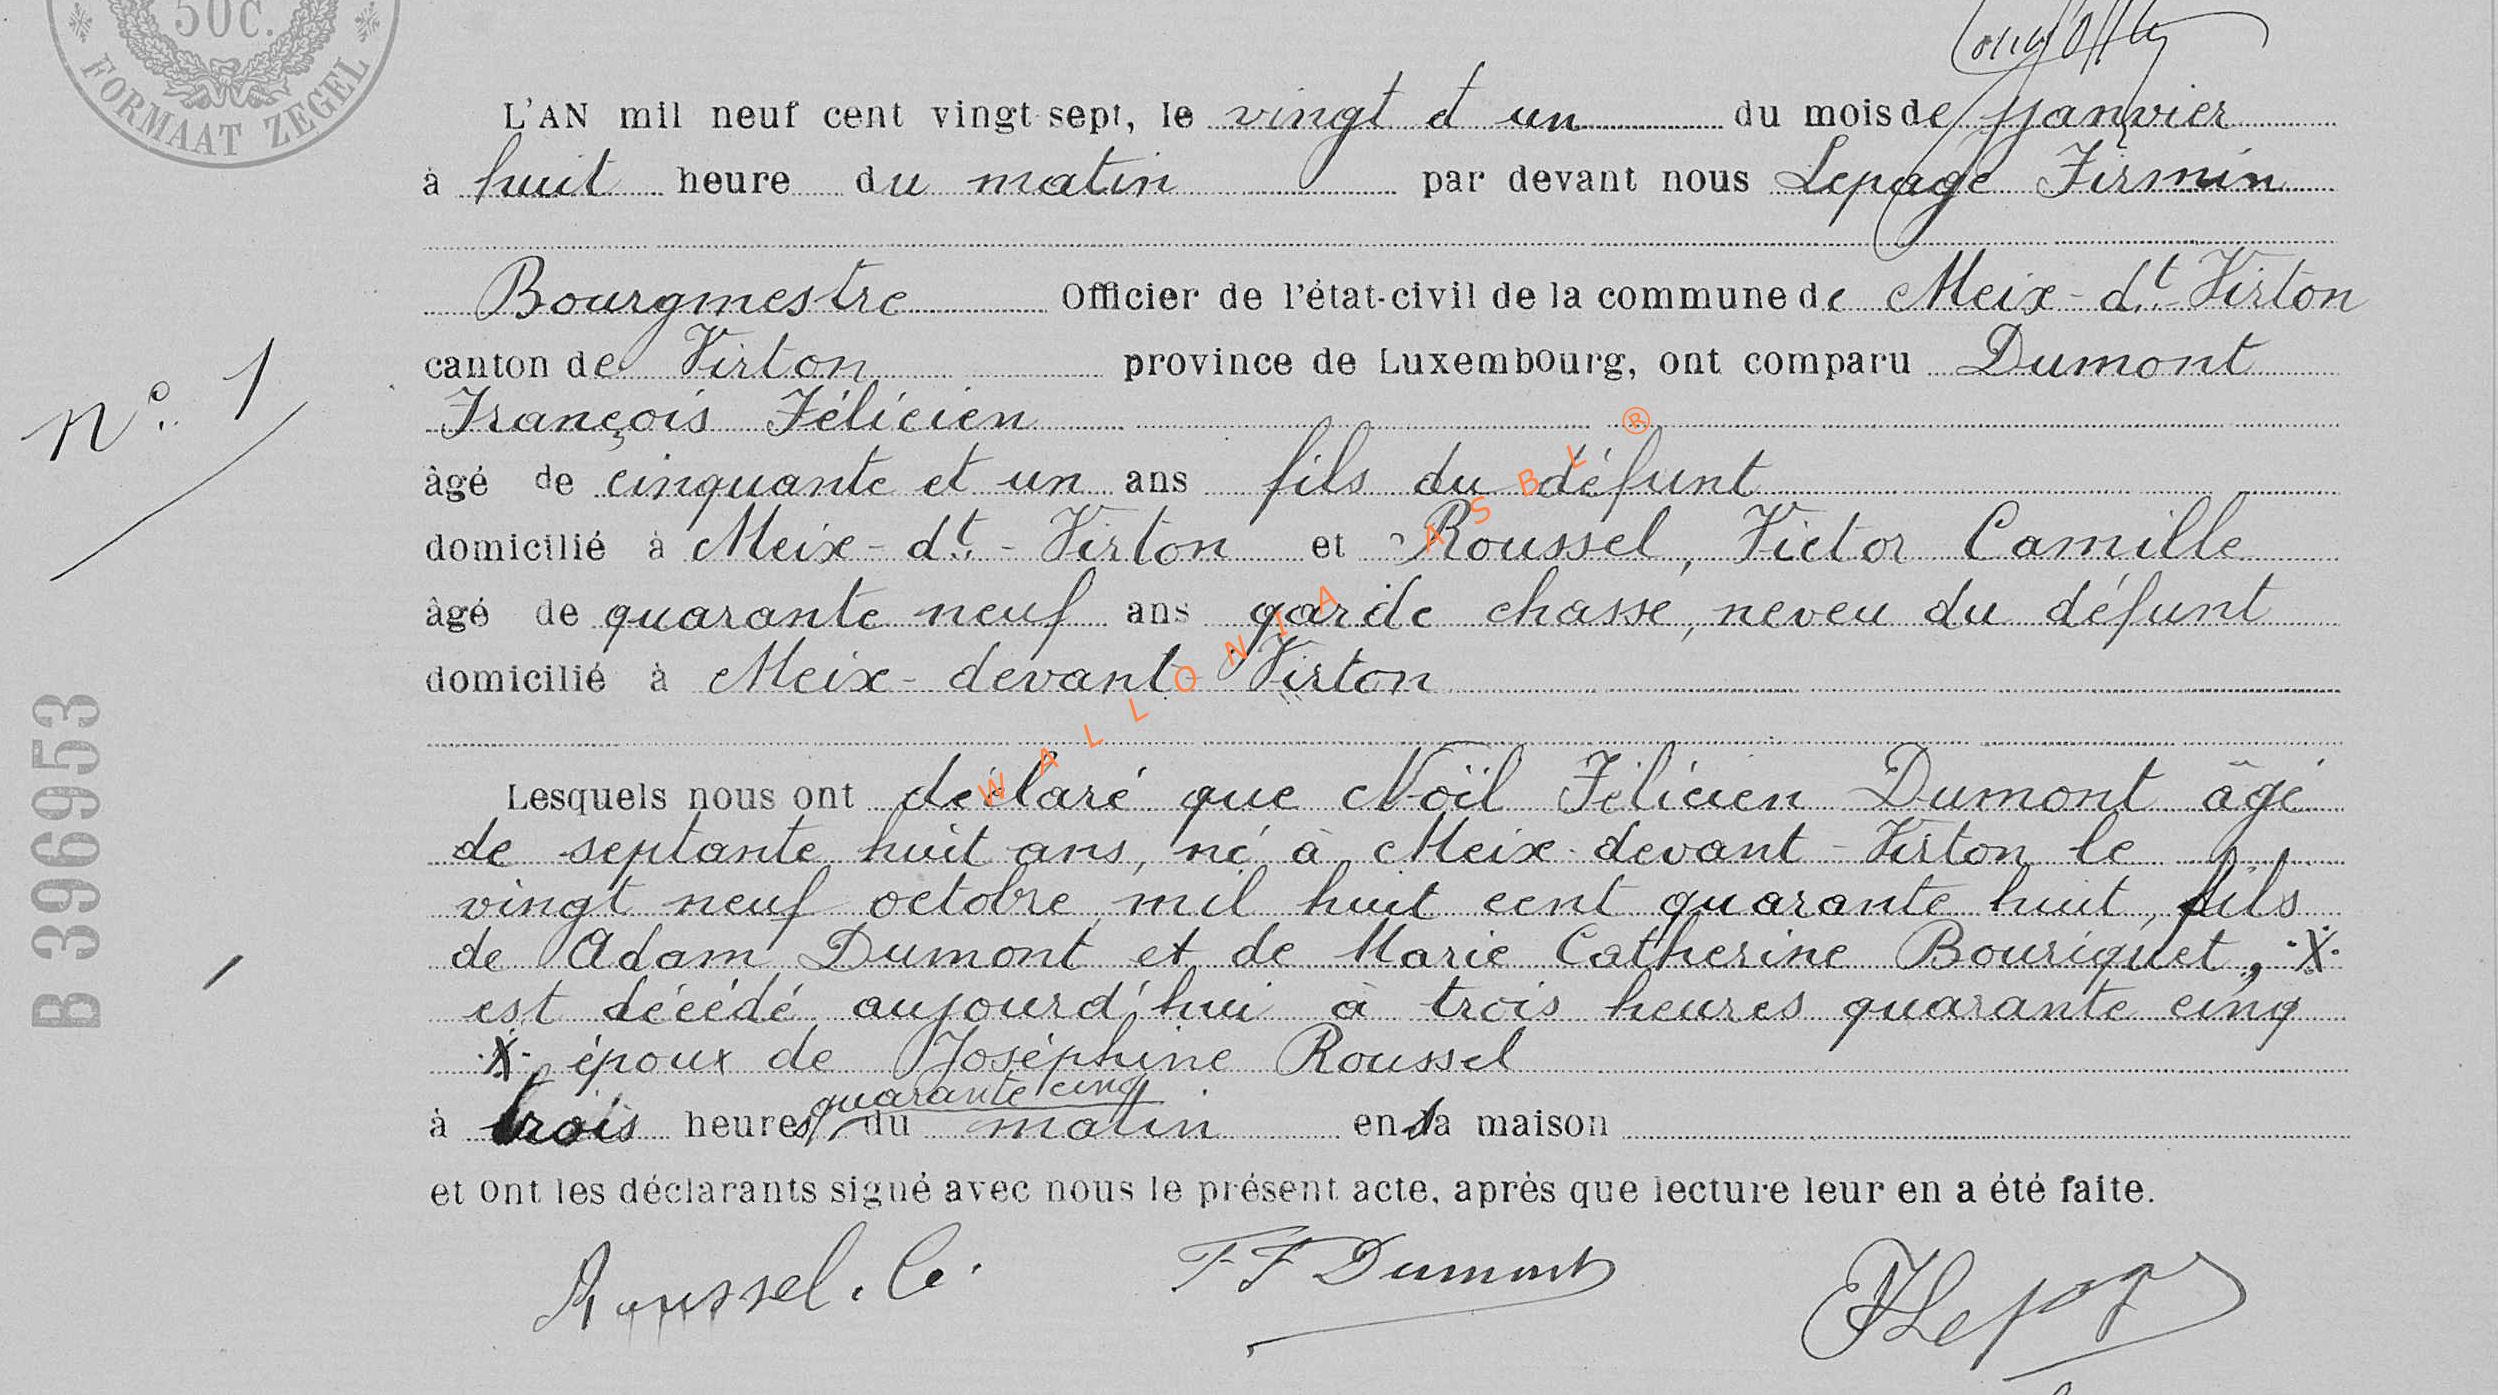 50C.
FORMAAT ZEGEL
L'AN mil neuf cent vingt sept, le vingt et un du mois de janvier
à huit heure du matin par devant nous Lepage Firmin
Bourgmestre Officier de l'état-civil de la commune de Meix-dt-Virton
canton de Virton province de Luxembourg, ont comparu Dumont
N° 1
François Félicien
âgé de cinquante et un ans fils du défunt
domicilié à Meix-dt-Virton et Roussel, Victor Camille
âgé de quarante neuf ans garde chasse, neveu du défunt
domicilié à Meix-devant-Virton
WALLONIA ASBL ®
B 396953
Lesquels nous ont déclaré que Noël Félicien Dumont âgé
de septante huit ans, né à Meix-devant-Virton le
vingt neuf octobre mil huit cent quarante huit, fils
de Adam Dumont et de Marie Catherine Bouriquet, X
est décédé aujourd'hui à trois heures quarante cinq
X époux de Joséphine Roussel
quarante cinq
à trois heures du matin en sa maison
et ont les déclarants signé avec nous le présent acte, après que lecture leur en a été faite.
Roussel. C. FF Dumont F Lepage